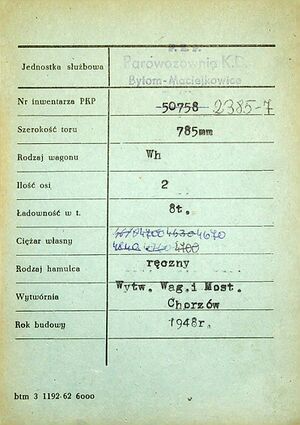 P. K. P.
Parowozownia K.D.
Jednostka służbowa
Bytom-Maciejkowice
Nr inwentarza PKP 50758 2385-7
Szerokość toru 785mm
Rodzaj wagonu Wh
Ilość osi 2
Ładowność w t. 8t.
Ciężar własny 4700 4630 4670
4840 4760 4700
Rodzaj hamulca ręczny
Wytwórnia Wytw. Wag.i Most.
Chorzów
Rok budowy 1948r.
btm 3 1192-62 6000